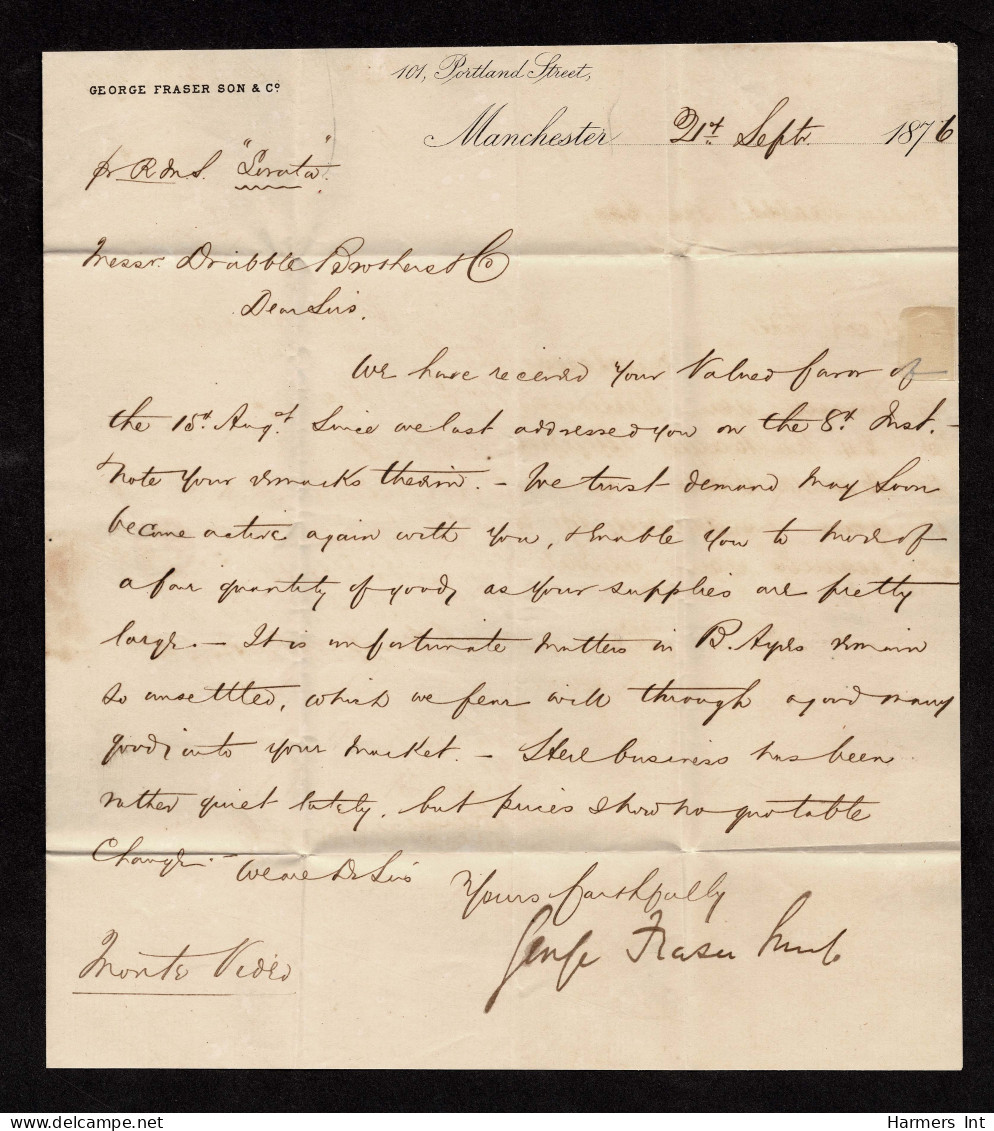 GEORGE FRASER SON & Co.
101, Portland Street,
Manchester 21st Septr. 1876
pr R M S. "Sorata".
Messrs. Drabble Brothers & Co
Dear Sirs,
We have received your valued favor of
the 15th Augt. since we last addressed you on the 8th Inst. -
& note your remarks therein. - We trust demand may soon
become active again with you, & enable you to move off
a fair quantity of goods as your supplies are pretty
large. - It is unfortunate matters in B. Ayres remain
so unsettled, which we fear will through a good many
goods into your market. - Here business has been
rather quiet lately, but prices show no quotable
change. - We are Dr Sirs
Yours faithfully
George Fraser Son & Co
Monte Video
Harmers Int